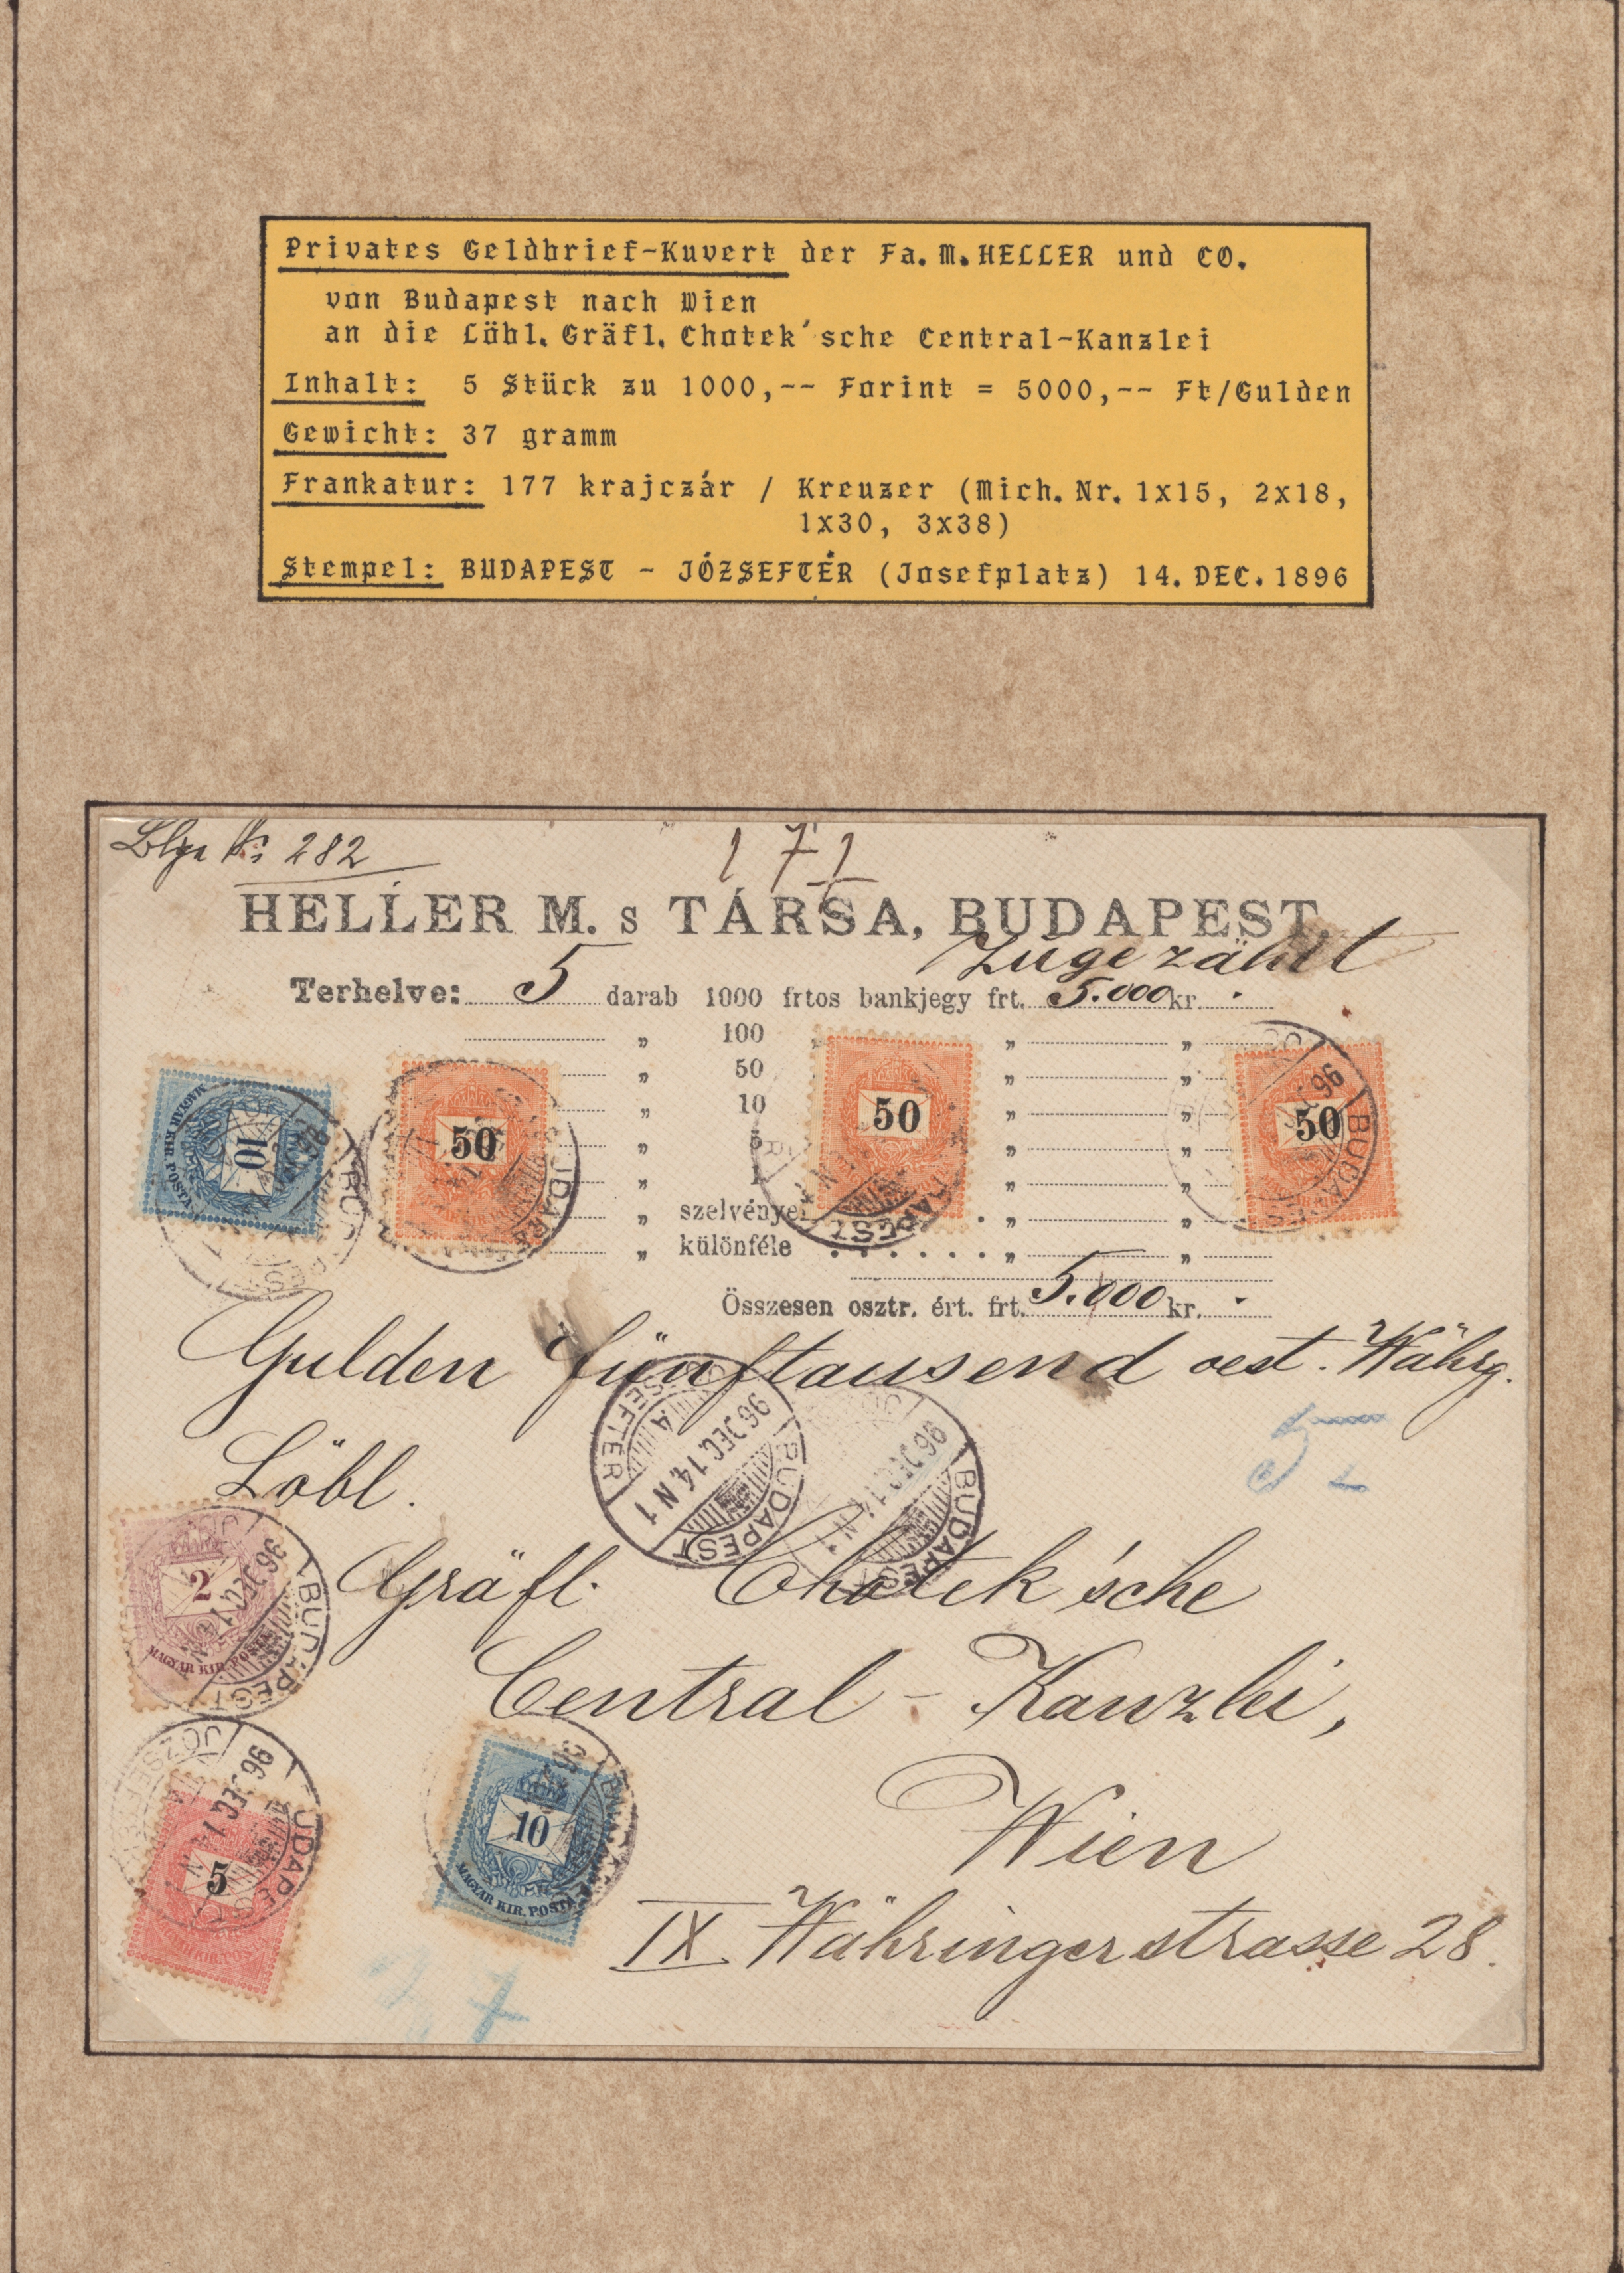 Privates Geldbrief-Kuvert der Fa. M. HELLER und CO.
von Budapest nach Wien
an die Löbl. Gräfl. Chotek'sche Central-Kanzlei
Inhalt: 5 Stück zu 1000,-- Forint = 5000,-- Ft/Gulden
Gewicht: 37 gramm
Frankatur: 177 krajczár / Kreuzer (Mich. Nr. 1x15, 2x18,
1x30, 3x38)
Stempel: BUDAPEST - JÓZSEFTÉR (Josefplatz) 14. DEC. 1896
282
HELLER M. s TÁRSA, BUDAPEST.
Zugezählt
Terhelve: 5 darab 1000 frtos bankjegy frt. 5.000 kr. .
„ 100 „ „
„ 50 „ „
„ 10 „ „
„ 5 „ „
„ 1 „ „
„ szelvénye „ „
„ különféle „ „
10
50
50
50
Összesen osztr. ért. frt. 5.000 kr. .
Gulden fünftausend oest. Währg.
BUDAPEST JÓZSEFTÉR 96 DEC. 14 N 1
BUDAPEST 96 DEC 14 N
Löbl.
Gräfl. Chotek'sche
2
MAGYAR KIR. POSTA
Central-Kanzlei,
Wien
5
10
MAGYAR KIR. POSTA
IX. Währingerstrasse 28.